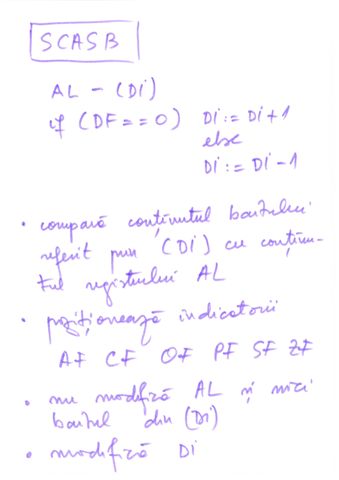 SCASB
AL - (Di)
if (DF == 0) Di := Di + 1
else
Di := Di - 1
• compară conținutul baitului
referit prin (Di) cu conținu-
tul registrului AL
• poziționează indicatorii
AF CF OF PF SF ZF
• nu modifică AL și nici
baitul din (Di)
• modifică Di